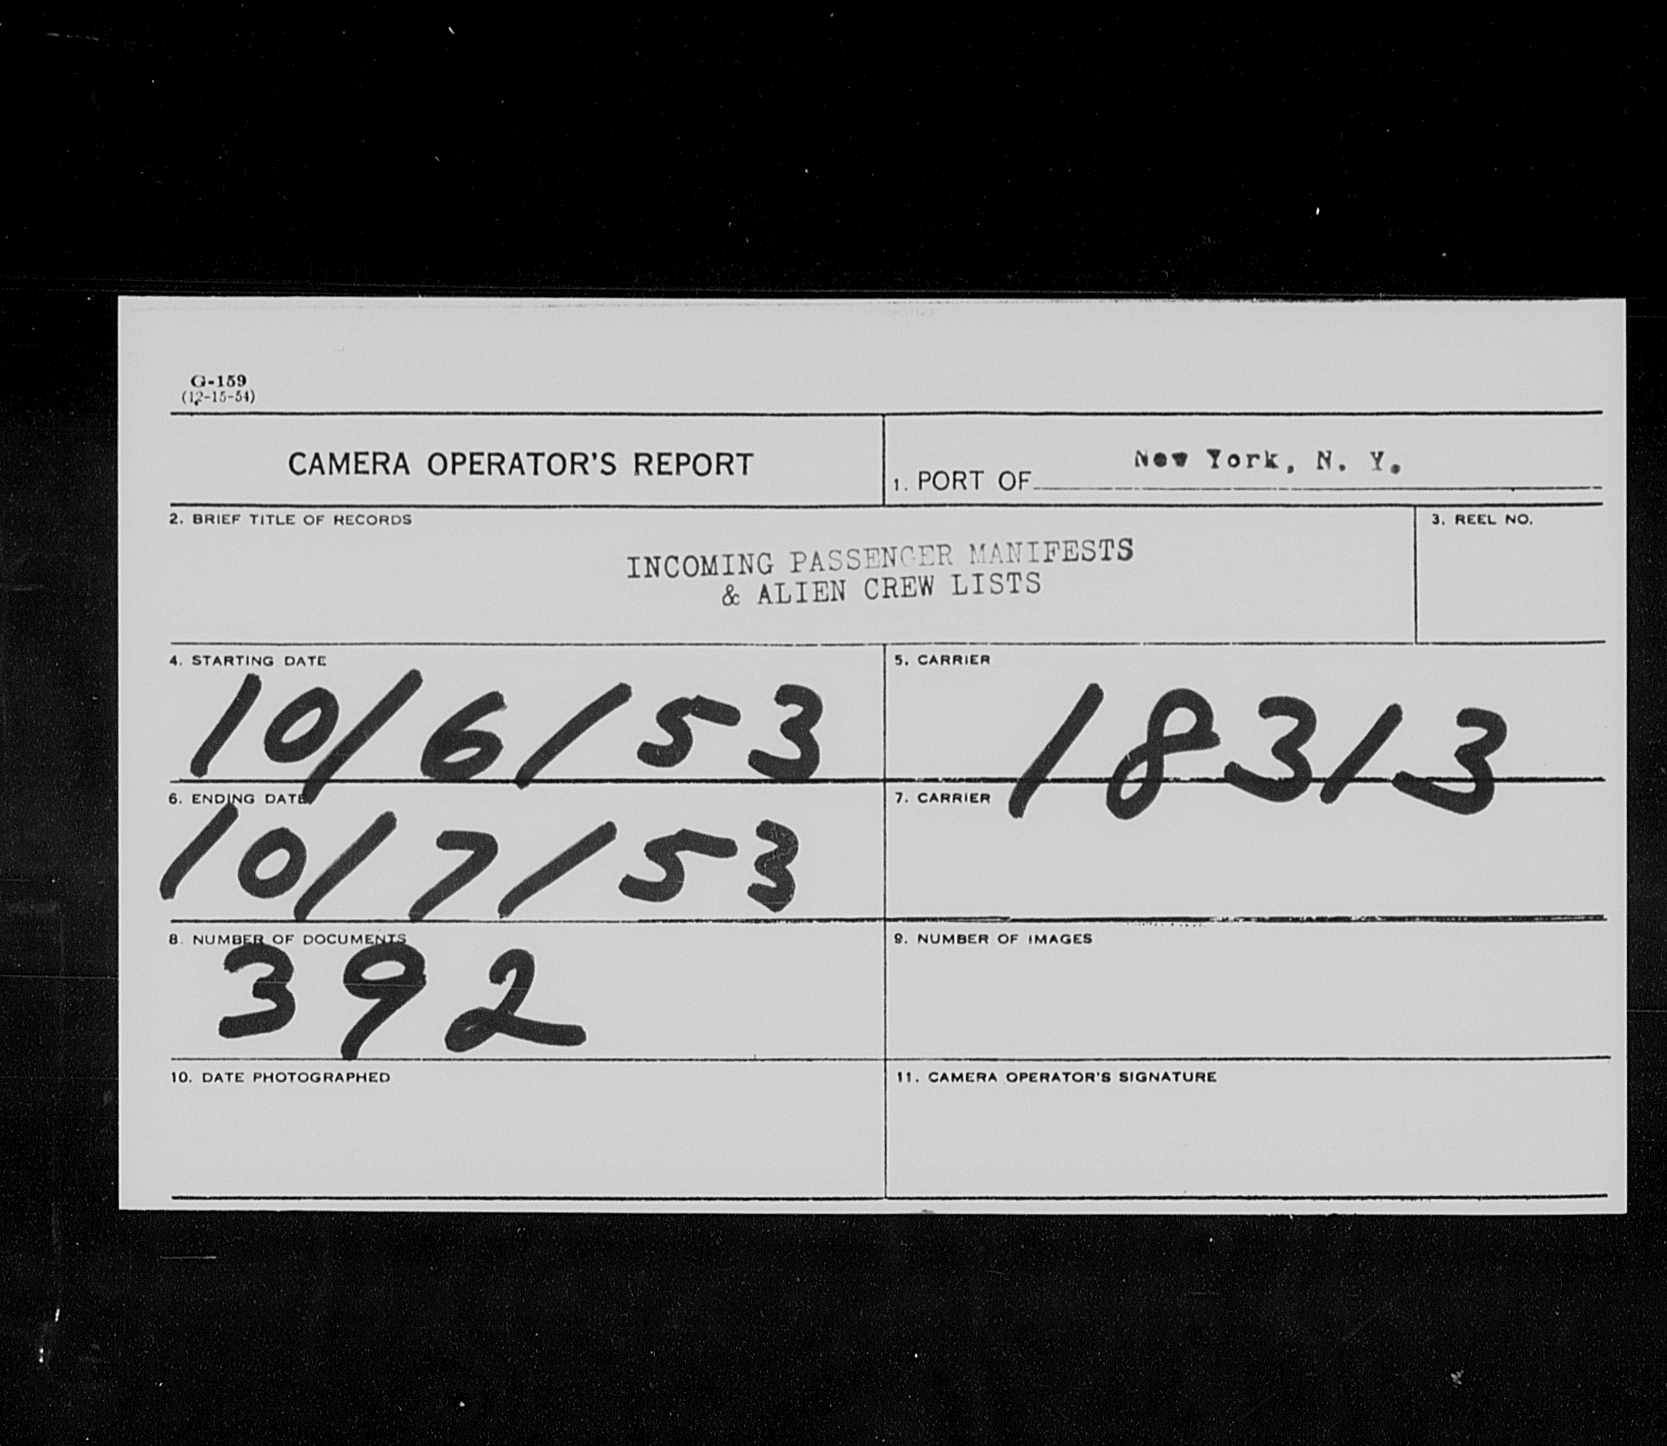 G-159
(12-15-54)
CAMERA OPERATOR'S REPORT
1. PORT OF New York, N. Y.
2. BRIEF TITLE OF RECORDS
INCOMING PASSENGER MANIFESTS
& ALIEN CREW LISTS
3. REEL NO.
4. STARTING DATE
10/6/53
5. CARRIER
18313
6. ENDING DATE
10/7/53
7. CARRIER
8. NUMBER OF DOCUMENTS
392
9. NUMBER OF IMAGES
10. DATE PHOTOGRAPHED
11. CAMERA OPERATOR'S SIGNATURE